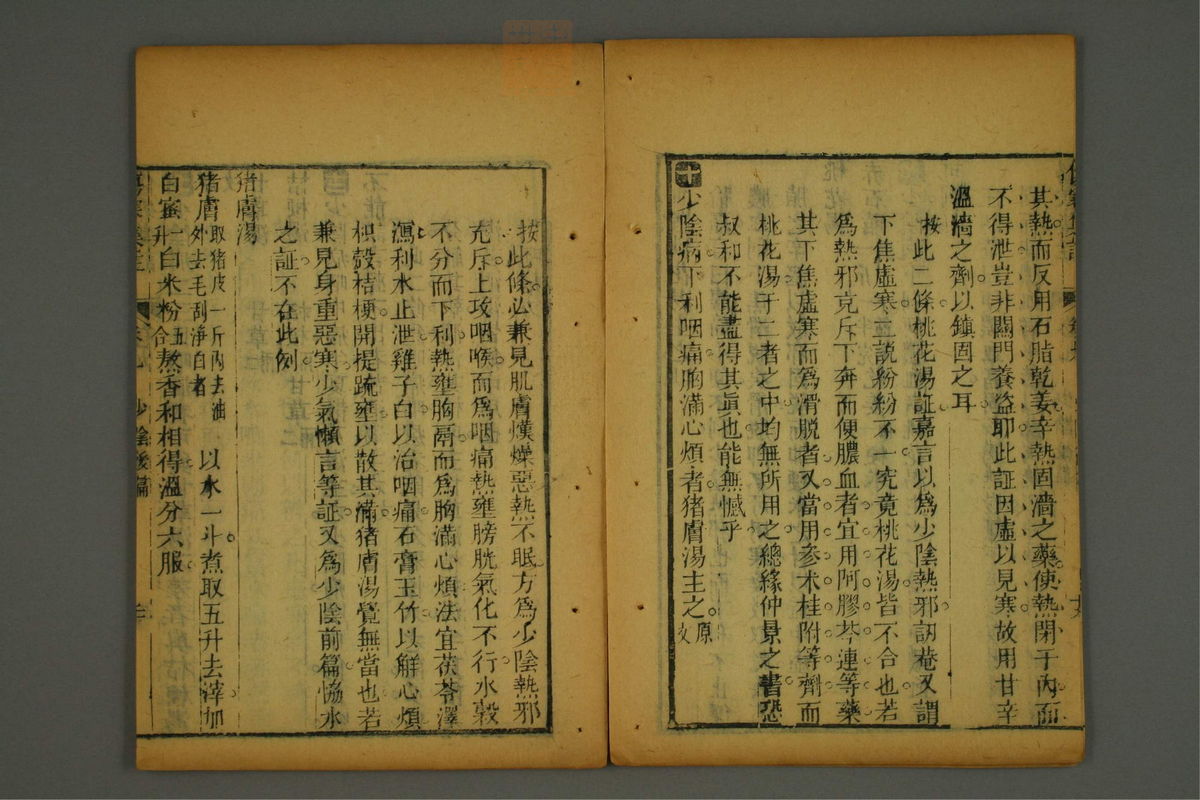 其熱而反用石脂乾姜辛熱固濇之藥使熱閉于內而
不得泄豈非關門養盜耶此証因虛以見寒故用甘辛
溫濇之劑以鎮固之耳
按此二條桃花湯証嘉言以為少陰熱邪訒菴又謂
下焦虛寒並說紛紛不一究竟桃花湯皆不合也若
為熱邪充斥下奔而便膿血者宜用阿膠芩連等藥
其下焦虛寒而為滑脫者又當用參朮桂附等劑而
桃花湯于二者之中均無所用之總緣仲景之書恐
叔和不能盡得其眞也能無憾乎
十 少陰病下利咽痛胸滿心煩者猪膚湯主之原文
按此條必兼見肌膚熯燥惡熱不眠方為少陰熱邪
充斥上攻咽喉而為咽痛熱壅膀胱氣化不行水穀
不分而下利熱壅胸鬲而為胸滿心煩法宜茯苓澤
瀉利水止泄雞子白以治咽痛石膏玉竹以解心煩
枳殼桔梗開提疏壅以散其滿猪膚湯覺無當也若
兼見身重惡寒少氣懶言等証又為少陰前篇協水
之証不在此例
猪膚湯
猪膚取猪皮一斤內去油外去毛刮淨白者 以水一斗煮取五升去滓加
白蜜一升白米粉五合熬香和相得溫分六服
少陰後編